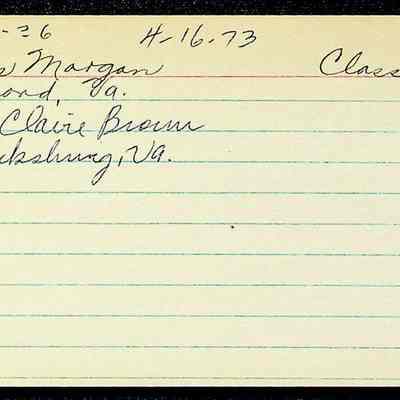 -26 4-16-73
Morgan Class
ond, Va.
Claire Brown
icksburg, Va.